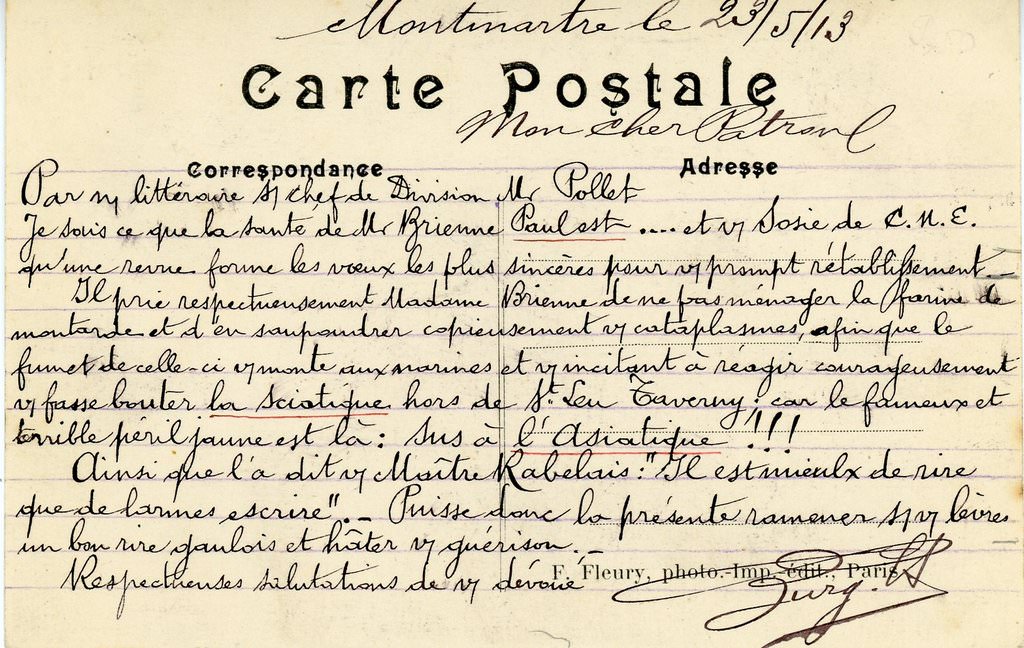 Montmartre le 23/5/13
Carte Postale
Mon cher Patron
Correspondance
Adresse
Par littéraire s/ chef de Division Mr Pollet
Je sais ce que la santé de Mr Brienne Paul est .... et v/ Sosie de C.N.E.
qu'une revue forme les vœux les plus sincères pour v/ prompt rétablissement _
Il prie respectueusement Madame Brienne de ne pas ménager la farine de
moutarde et d'en saupoudrer copieusement v/ cataplasmes, afin que le
fumet de celle-ci v/ monte aux narines et v/ incitant à réagir courageusement
v/ fasse bouter la sciatique hors de St Leu Taverny ; car le fameux et
terrible péril jaune est là : sus à l'Asiatique !!!
Ainsi que l'a dit v/ Maître Rabelais : "Il est mieulx de rire
que de larmes escrire". _ Puisse donc la présente ramener s/ v/ lèvres
un bon rire gaulois et hâter v/ guérison. _
Respectueuses salutations de v/ dévoué
F. Fleury, photo.-Imp.-édit., Paris